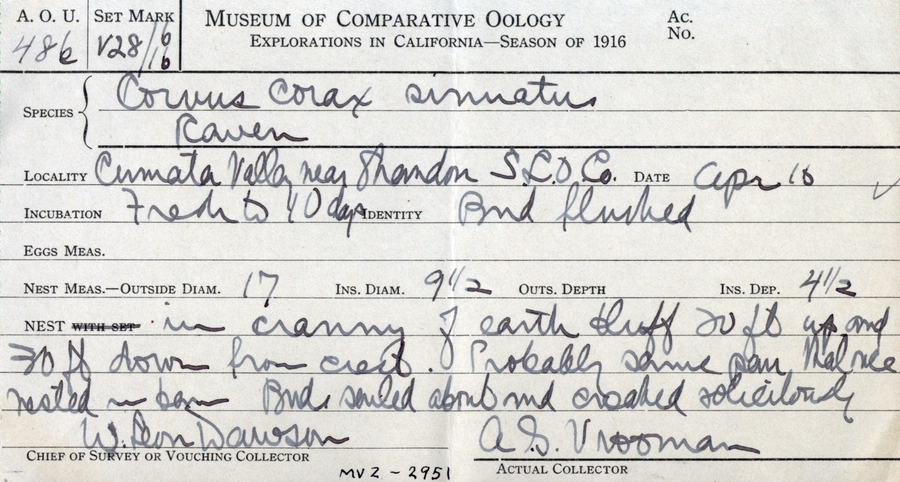 A. O. U. SET MARK MUSEUM OF COMPARATIVE OOLOGY Ac. No.
486 V28/6/16 EXPLORATIONS IN CALIFORNIA—SEASON OF 1916
SPECIES Corvus corax sinuatus
Raven
LOCALITY Valley near Shandon S.L.O. Co. DATE Apr 10
INCUBATION Fresh to 10 days IDENTITY Bird flushed
EGGS MEAS.
NEST MEAS.—OUTSIDE DIAM. 17 INS. DIAM. 9 1/2 OUTS. DEPTH INS. DEP. 4 1/2
NEST WITH SET in cranny of earth bluff 20 ft up and
30 ft down from crest. Probably same pair that once
nested in barn Birds sailed about and croaked solicitously
W. Leon Dawson A. G. Vrooman
CHIEF OF SURVEY OR VOUCHING COLLECTOR ACTUAL COLLECTOR
MVZ - 2951